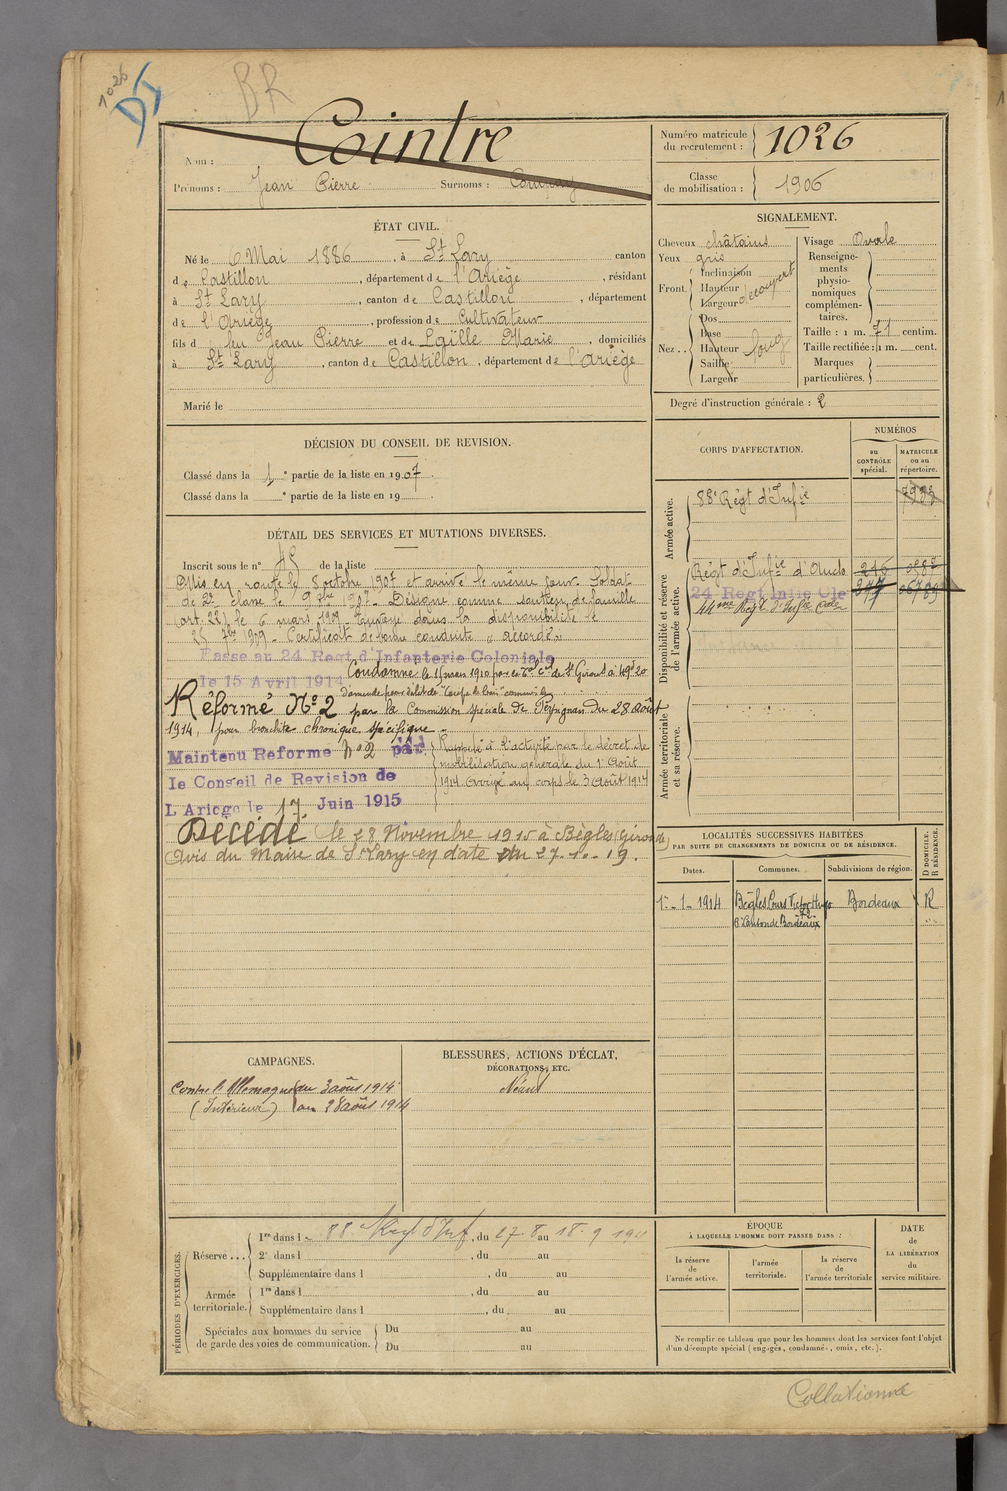 1026
BR
Nom : Cointre
Prénoms : Jean Pierre Surnoms :
Numéro matricule du recrutement : 1026
Classe de mobilisation : 1906
ÉTAT CIVIL.
Né le 6 Mai 1886, à St Lary canton
de Castillon, département de l'Ariège, résidant
à St Lary, canton de Castillon, département
de l'Ariège, profession de Cultivateur
fils d feu Jean Pierre et de Laille Marie, domiciliés
à St Lary, canton de Castillon, département de l'Ariège
Marié le
SIGNALEMENT.
Cheveux châtains
Yeux gris
Front. Inclinaison
Hauteur
Largeur
découvert
Nez.. Dos
Base
Hauteur
Saillie
Largeur
long
Visage Ovale
Renseignements physionomiques complémentaires.
Taille : 1 m. 71 centim.
Taille rectifiée : 1 m. cent.
Marques particulières.
Degré d'instruction générale : 2
DÉCISION DU CONSEIL DE REVISION.
Classé dans la 1e partie de la liste en 1907.
Classé dans la e partie de la liste en 19
CORPS D'AFFECTATION.
NUMÉROS
au CONTRÔLE spécial.
MATRICULE ou au répertoire.
Armée active.
88e Régt d'Infie
Disponibilité et réserve de l'armée active.
Régt d'Infie d'Auch 246
24 Regt Infie Cle 277
44me Régt d'Infie
Armée territoriale et sa réserve.
DÉTAIL DES SERVICES ET MUTATIONS DIVERSES.
Inscrit sous le n° 45 de la liste
Mis en route le 8 octobre 1907 et arrivé le même jour. Soldat
de 2e classe le 9 Xbre 1907. Désigné comme soutien de famille
(art. 22) le 6 mars 1909. Envoyé dans la disponibilité le
25 7bre 1909. Certificat de bonne conduite "accordé".
Passé au 24 Regt d'Infanterie Coloniale
le 15 Avril 1914
Condamné le 15 mars 1910 par le de St Girons à
Réformé No 2 par la Commission spéciale de Perpignan du 28 Août
1914, pour bronchite chronique spécifique.
Maintenu Reforme No 2 par
le Conseil de Revision de
L Ariege le 17 Juin 1915
Rappelé à l'activité par le décret de
mobilisation générale du 1er Août
1914 Arrivé au corps le 3 août 1914
Décédé le 28 Novembre 1915 à Bègles (Gironde)
Avis du Maire de St Lary en date du 27.1.19.
LOCALITÉS SUCCESSIVES HABITÉES
PAR SUITE DE CHANGEMENTS DE DOMICILE OU DE RÉSIDENCE.
Dates. Communes. Subdivisions de région. D DOMICILE. R RÉSIDENCE.
1-1-1914 Bègles Cours Victor Hugo Bordeaux R
Canton de Bordeaux
CAMPAGNES.
Contre l'Allemagne du 3 août 1914
(Intérieur) au 28 août 1914
BLESSURES, ACTIONS D'ÉCLAT,
DÉCORATIONS, ETC.
Néant
PÉRIODES D'EXERCICES.
Réserve... 1re dans l e 88 Regt d'Inf, du 27.8 au 18.9
2e dans l , du au
Supplémentaire dans l , du au
Armée territoriale. 1re dans l , du au
Supplémentaire dans l , du au
Spéciales aux hommes du service de garde des voies de communication. Du au
Du au
ÉPOQUE
À LAQUELLE L'HOMME DOIT PASSER DANS :
la réserve de l'armée active.
l'armée territoriale.
la réserve de l'armée territoriale
DATE de LA LIBÉRATION du service militaire.
Ne remplir ce tableau que pour les hommes dont les services font l'objet
d'un décompte spécial (engagés, condamnés, omis, etc.).
Collationné